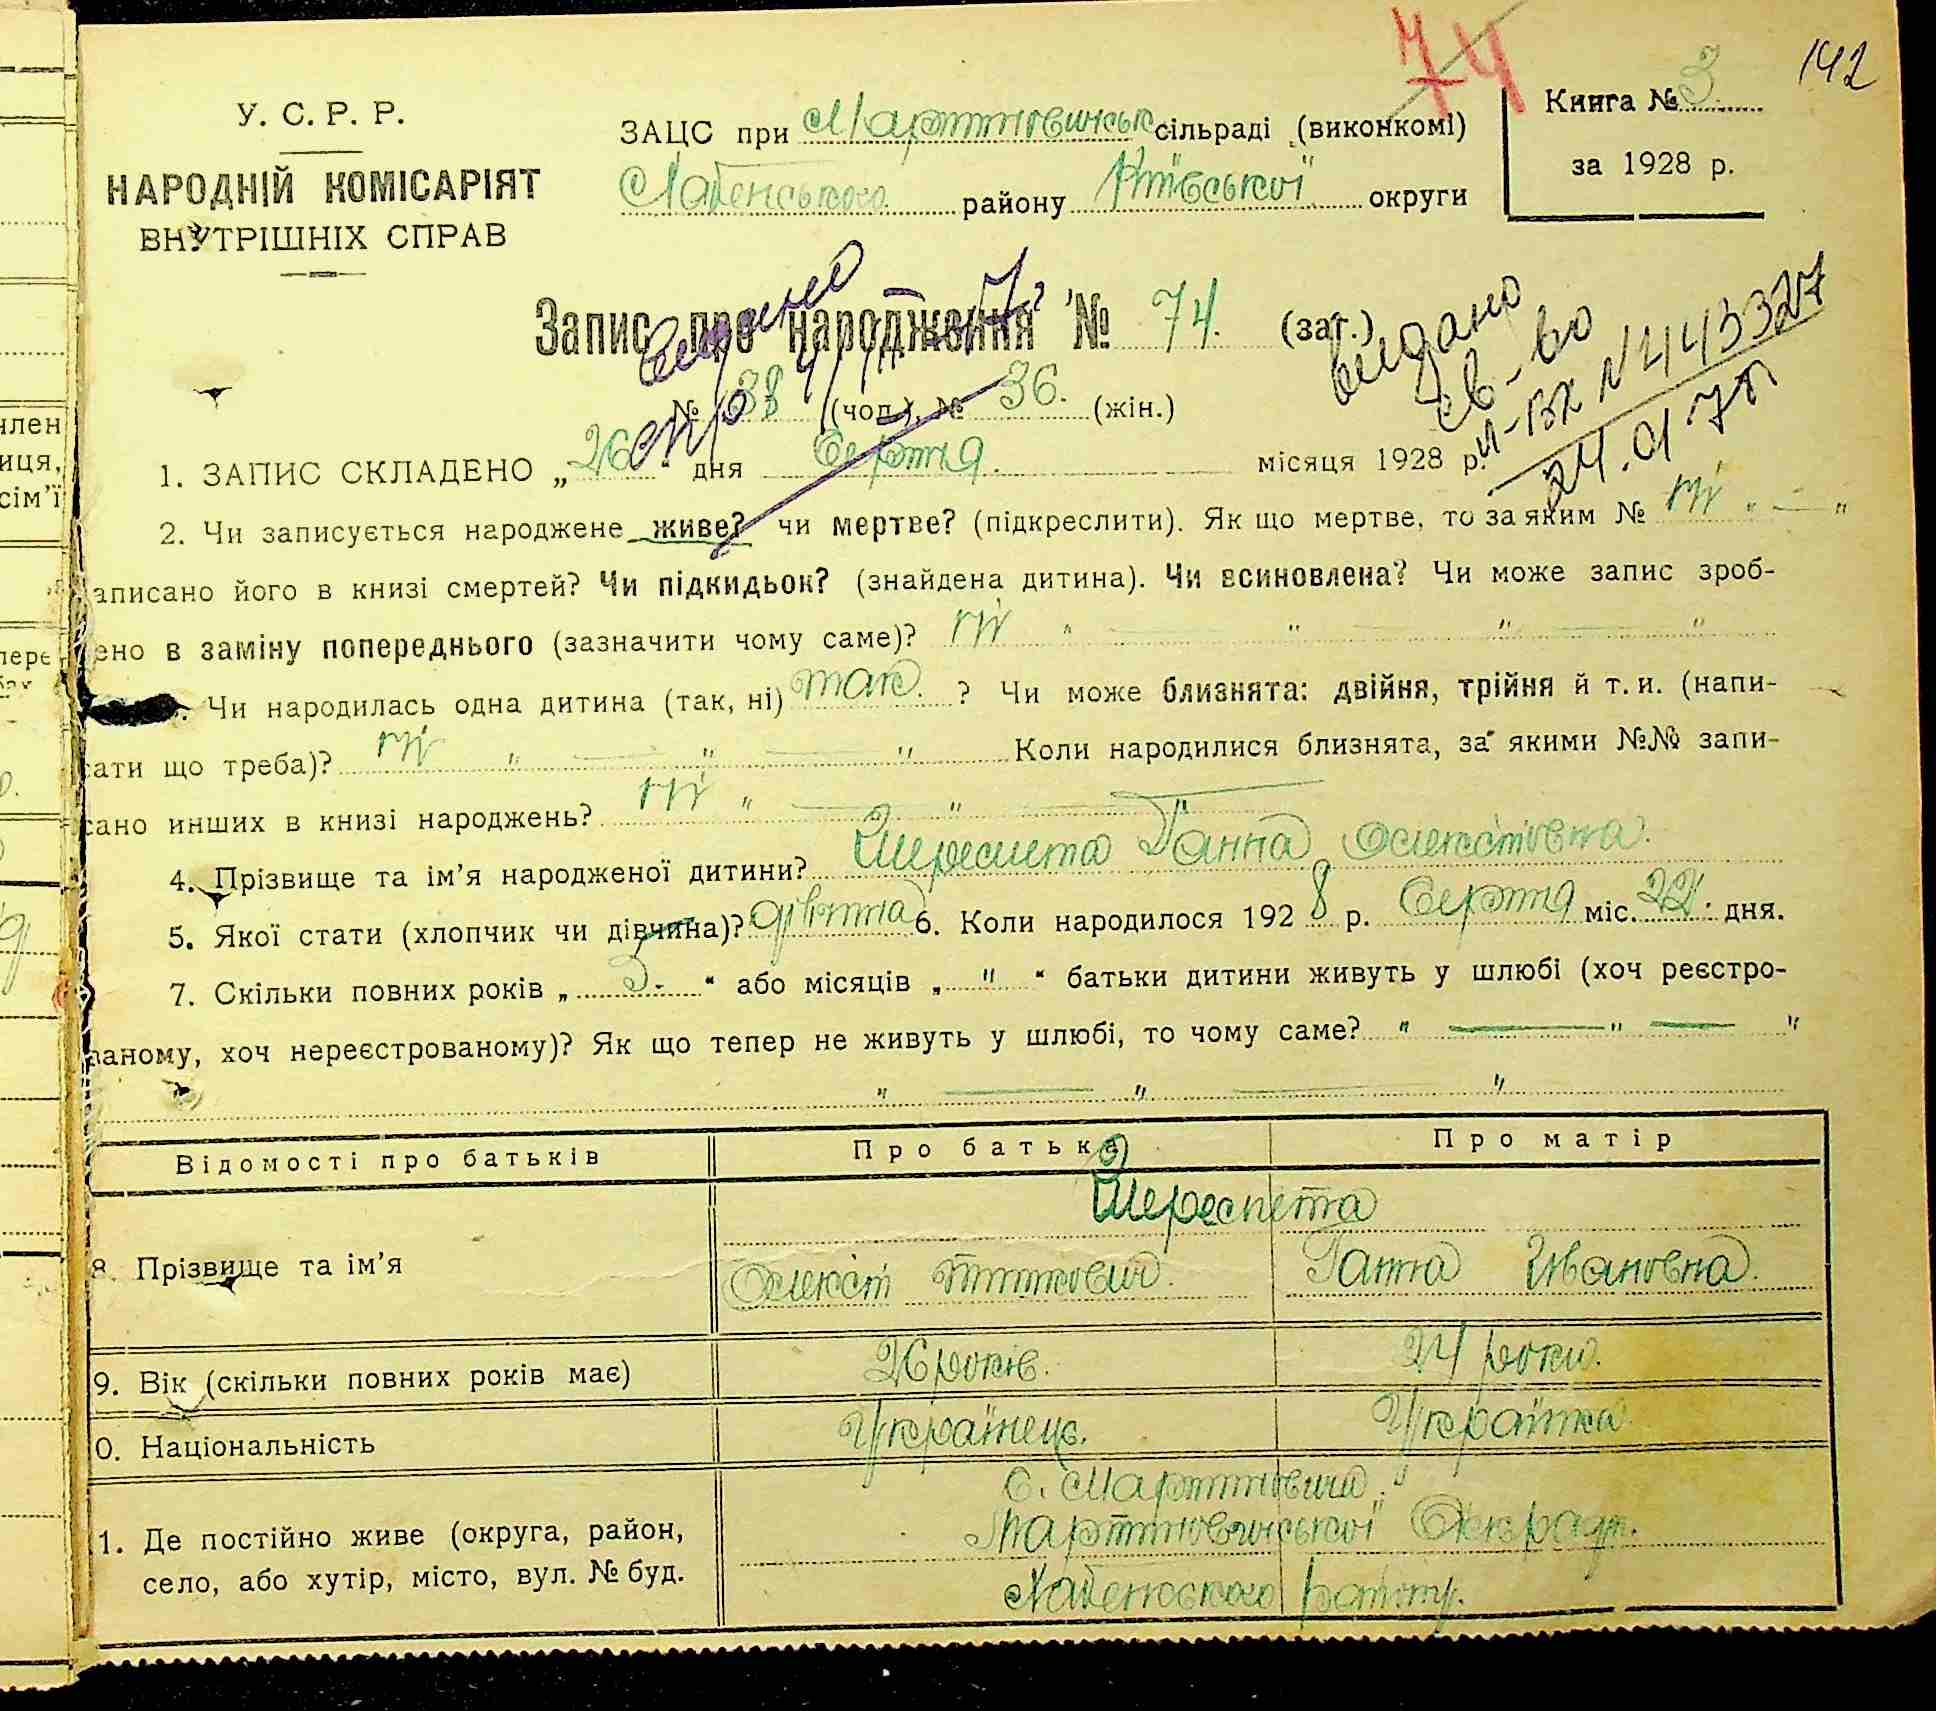 142
74
У. С. Р. Р.
НАРОДНІЙ КОМІСАРІЯТ
ВНУТРІШНІХ СПРАВ
ЗАЦС при Мартиновицьк сільраді (виконкомі)
району Київської округи
Книга № 3
за 1928 р.
Запис про народження № 74. (заг.)
видано
видано
св-во
II-БК N 443327
24.01.77
№ 38 (чол.), № 36. (жін.)
1. ЗАПИС СКЛАДЕНО „ 26 “ дня Серпня місяця 1928 р.
2. Чи записується народжене живе? чи мертве? (підкреслити). Як що мертве, то за яким № ні " — "
аписано його в книзі смертей? Чи підкидьок? (знайдена дитина). Чи всиновлена? Чи може запис зроб-
ено в заміну попереднього (зазначити чому саме)? ні " — " — " — "
Чи народилась одна дитина (так, ні) так. ? Чи може близнята: двійня, трійня й т. и. (напи-
сати що треба)? ні " — " — " Коли народилися близнята, за якими №№ запи-
сано инших в книзі народжень? ні " — " — "
4. Прізвище та ім'я народженої дитини? Шереспета Ганна Олексіївна.
5. Якої стати (хлопчик чи дівчина)? дівчина 6. Коли народилося 1928 р. Серпня міс. 22. дня.
7. Скільки повних років „ 5. “ або місяців „ " “ батьки дитини живуть у шлюбі (хоч реєстро-
ваному, хоч нереєстрованому)? Як що тепер не живуть у шлюбі, то чому саме? " — " — "
" — " — "
Відомості про батьків Про батька Про матір
Шереспета
8. Прізвище та ім'я Олексій Ганна Ивановна.
9. Вік (скільки повних років має) 26 років. 24 роки.
0. Національність Українець. Українка
С. Мартиновичі
1. Де постійно живе (округа, район, Мартиновицької Сільради.
село, або хутір, місто, вул. № буд. району.